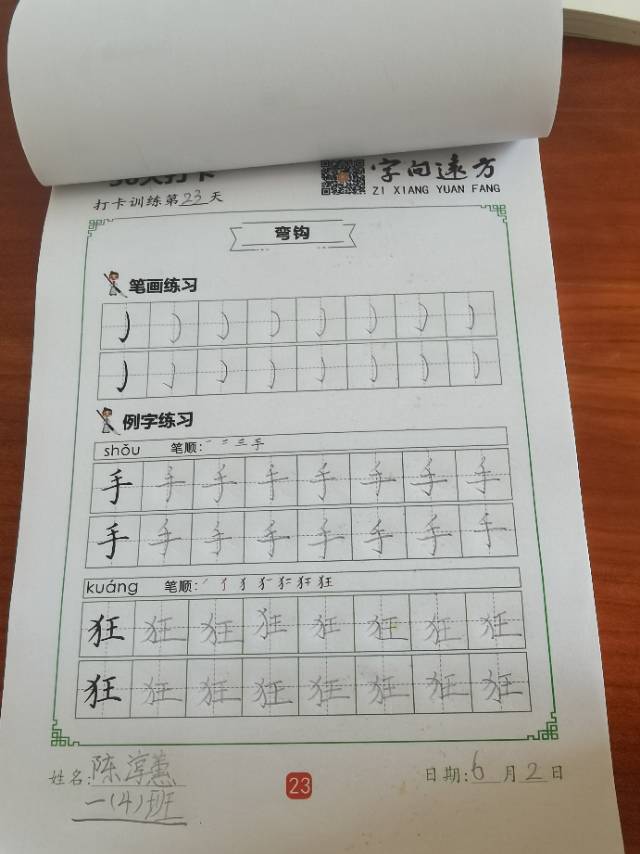 30天打卡
字向远方
ZI XIANG YUAN FANG
打卡训练第23天
弯钩
笔画练习
例字练习
shǒu 笔顺: 一 二 三 手
手手手手手手手手
手手手手手手手手
kuáng 笔顺:
狂狂狂狂狂狂狂狂
狂狂狂狂狂狂狂狂
姓名:陈淳蕙
一(4)班
23
日期:6月2日